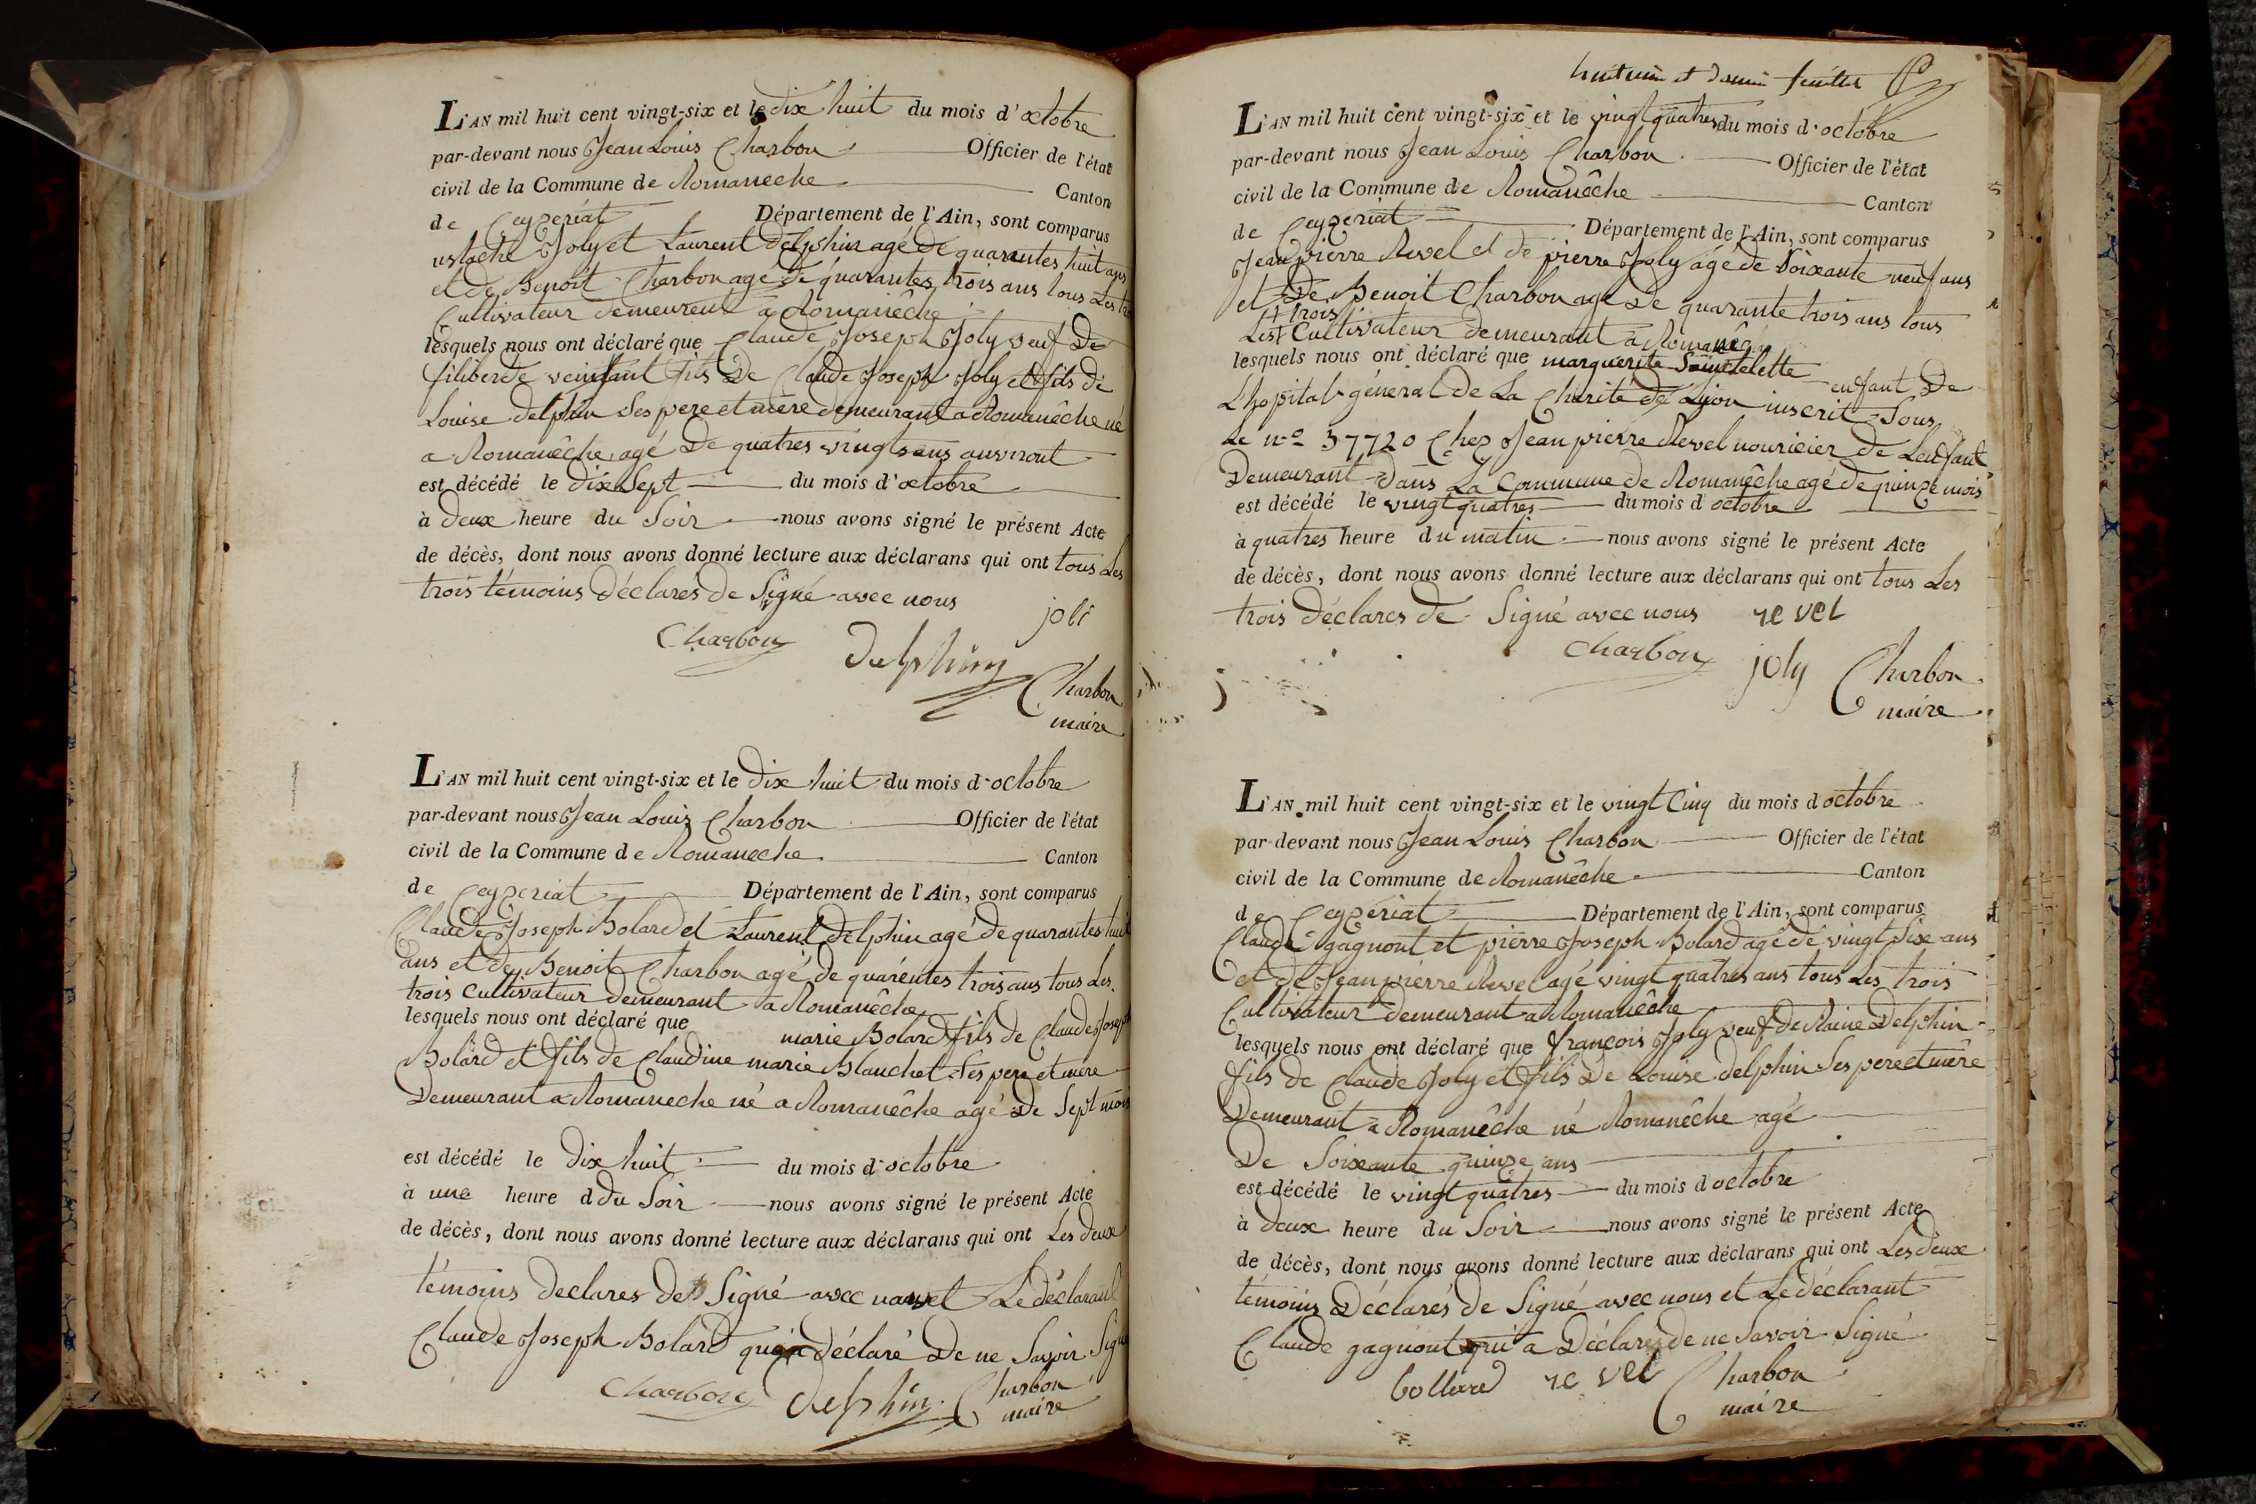 L'AN mil huit cent vingt-six et le dix huit du mois d'octobre
par-devant nous Jean Louis Charbon Officier de l'état
civil de la Commune de Romanêche Canton
de Ceyzeriat Département de l'Ain, sont comparus
ustache Joly et Laurent delphin agé de quarantes huit ans
et de Benoit Charbon agé de quarantes trois ans tous Les
Cultivateur demeurent a Romanêche
lesquels nous ont déclaré que Claude Joseph Joly veuf De
filiberde fils De Claude Joseph Joly et fils de
Louise delphin Ses pere et mere demeurant a Romanêche né
a Romanêche agé De quatres vingts ans
est décédé le dix Sept du mois d'octobre
à deux heure du Soir nous avons signé le présent Acte
de décès, dont nous avons donné lecture aux déclarans qui ont tous Les
trois témoins déclarés de Signé avec nous
joli
Charbon delphin Charbon
maire
L'AN mil huit cent vingt-six et le dix huit du mois d'octobre
par-devant nous Jean Louis Charbon Officier de l'état
civil de la Commune de Romaneche Canton
de Ceyzeriat Département de l'Ain, sont comparus
Claude Joseph Bolard et Laurent delphin agé de quarantes huit
ans et de Benoit Charbon agé de quarentes trois ans tous Les
trois Cultivateur demeurant a Romanêche
lesquels nous ont déclaré que marie Bolard fils de Claude Joseph
Bolard et fils de Claudine marie Blanchet Ses pere et mere
Demeurant a Romaneche né a Romanêche agé De Sept mois
est décédé le dix huit du mois d'octobre
à une heure d du Soir nous avons signé le présent Acte
de décès, dont nous avons donné lecture aux déclarans qui ont Les deux
témoins declares de Signé avec nous et Le déclarant
Claude Joseph Bolard qui a déclaré De ne Savoir Signé
Charbon delphin Charbon
maire
feuillet
L'AN mil huit cent vingt-six et le vingt quatres du mois d'octobre
par-devant nous Jean Louis Charbon Officier de l'état
civil de la Commune de Romanêche Canton
de Ceyzeriat Département de l'Ain, sont comparus
Jean pierre Revel et de pierre Joly agé de Soixante neuf ans
et De Benoit Charbon agé De quarante trois ans tous
+ trois
Les + Cultivateur demeurant a Romanêche
lesquels nous ont déclaré que marguerite Saintelette enfant De
L'hopital général de La Charité de Lyon inscrit Sous
Le n.º 37720 Chez Jean pierre Revel nouricier de Lenfant
Demeurant dans La Commune de Romanêche agé de quinze mois
est décédé le vingt quatres du mois d'octobre
à quatres heure du matin nous avons signé le présent Acte
de décès, dont nous avons donné lecture aux déclarans qui ont tous Les
trois déclares de Signé avec nous revel
Charbon joly Charbon
maire
L'AN mil huit cent vingt-six et le vingt Cinq du mois d'octobre
par-devant nous Jean Louis Charbon Officier de l'état
civil de la Commune de Romanêche Canton
de Ceyzériat Département de l'Ain, sont comparus
Claude gagnont et pierre Joseph Bolard agé de vingt Six ans
et de Jean pierre Revel agé vingt quatres ans tous Les trois
Cultivateur demeurant a Romanêche
lesquels nous ont déclaré que françois Joly veuf de Raine Delphin
fils de Claude Joly et fils De Louise delphin Ses pere et mère
Demeurant a Romanêche né Romanêche agé
De Soixante quinze ans
est décédé le vingt quatres du mois d'octobre
à deux heure du Soir nous avons signé le présent Acte
de décès, dont nous avons donné lecture aux déclarans qui ont Les deux
témoins Déclarés de Signé avec nous et Le déclarant
Claude gagnont qui a Déclarer de ne Savoir Signé
bollard revel Charbon
maire